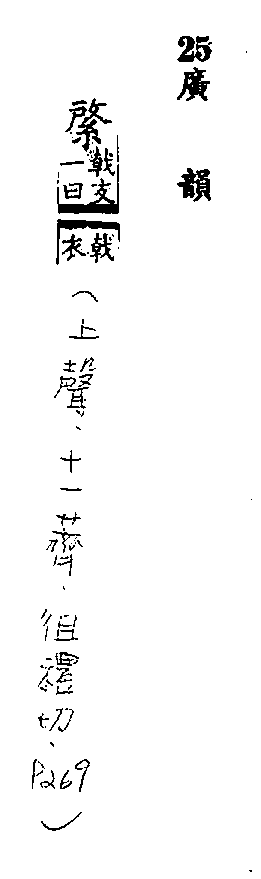 25廣韻
綮戟支一曰戟衣(上聲、十一薺、徂禮切、P269)